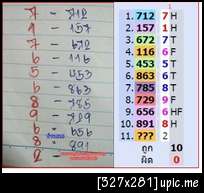 7 - 712
1 - 157
7 - 672
6 - 116
5 - 453
6 - 863
8 - 785
9 - 729
6 - 656
8 - 891
2 -
1. 712 7 H
2. 157 1 H
3. 672 7 T
4. 116 6 F
5. 453 5 T
6. 863 6 T
7. 785 8 T
8. 729 9 F
9. 656 6 HF
10. 891 8 H
11. ??? 2
ถูก 10
ผิด 0
[327x281]upic.me